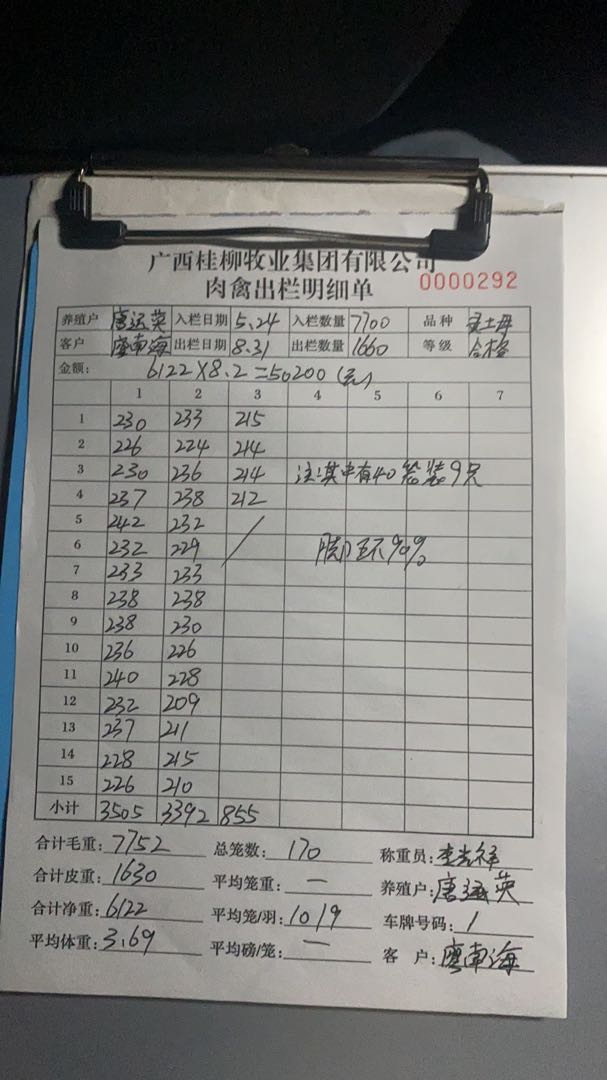 广西桂柳牧业集团有限公司
肉禽出栏明细单 0000292
养殖户 唐运英 入栏日期 5.24 入栏数量 7700 品种 土母
客户 廖南海 出栏日期 8.31 出栏数量 1660 等级 合格
金额: 6122×8.2=50200(元)
1 2 3 4 5 6 7
1 230 233 215
2 226 224 214
3 230 236 214 注:其中有40笼装9只
4 237 238 212
5 242 232
6 232 229 90%
7 233 233
8 238 238
9 238 230
10 236 226
11 240 228
12 232 209
13 237 211
14 228 215
15 226 210
小计 3505 3392 855
合计毛重: 7752 总笼数: 170 称重员: 李祥
合计皮重: 1630 平均笼重: — 养殖户: 唐运英
合计净重: 6122 平均笼/羽: 10/9 车牌号码: /
平均体重: 3.69 平均磅/笼: — 客户: 廖南海